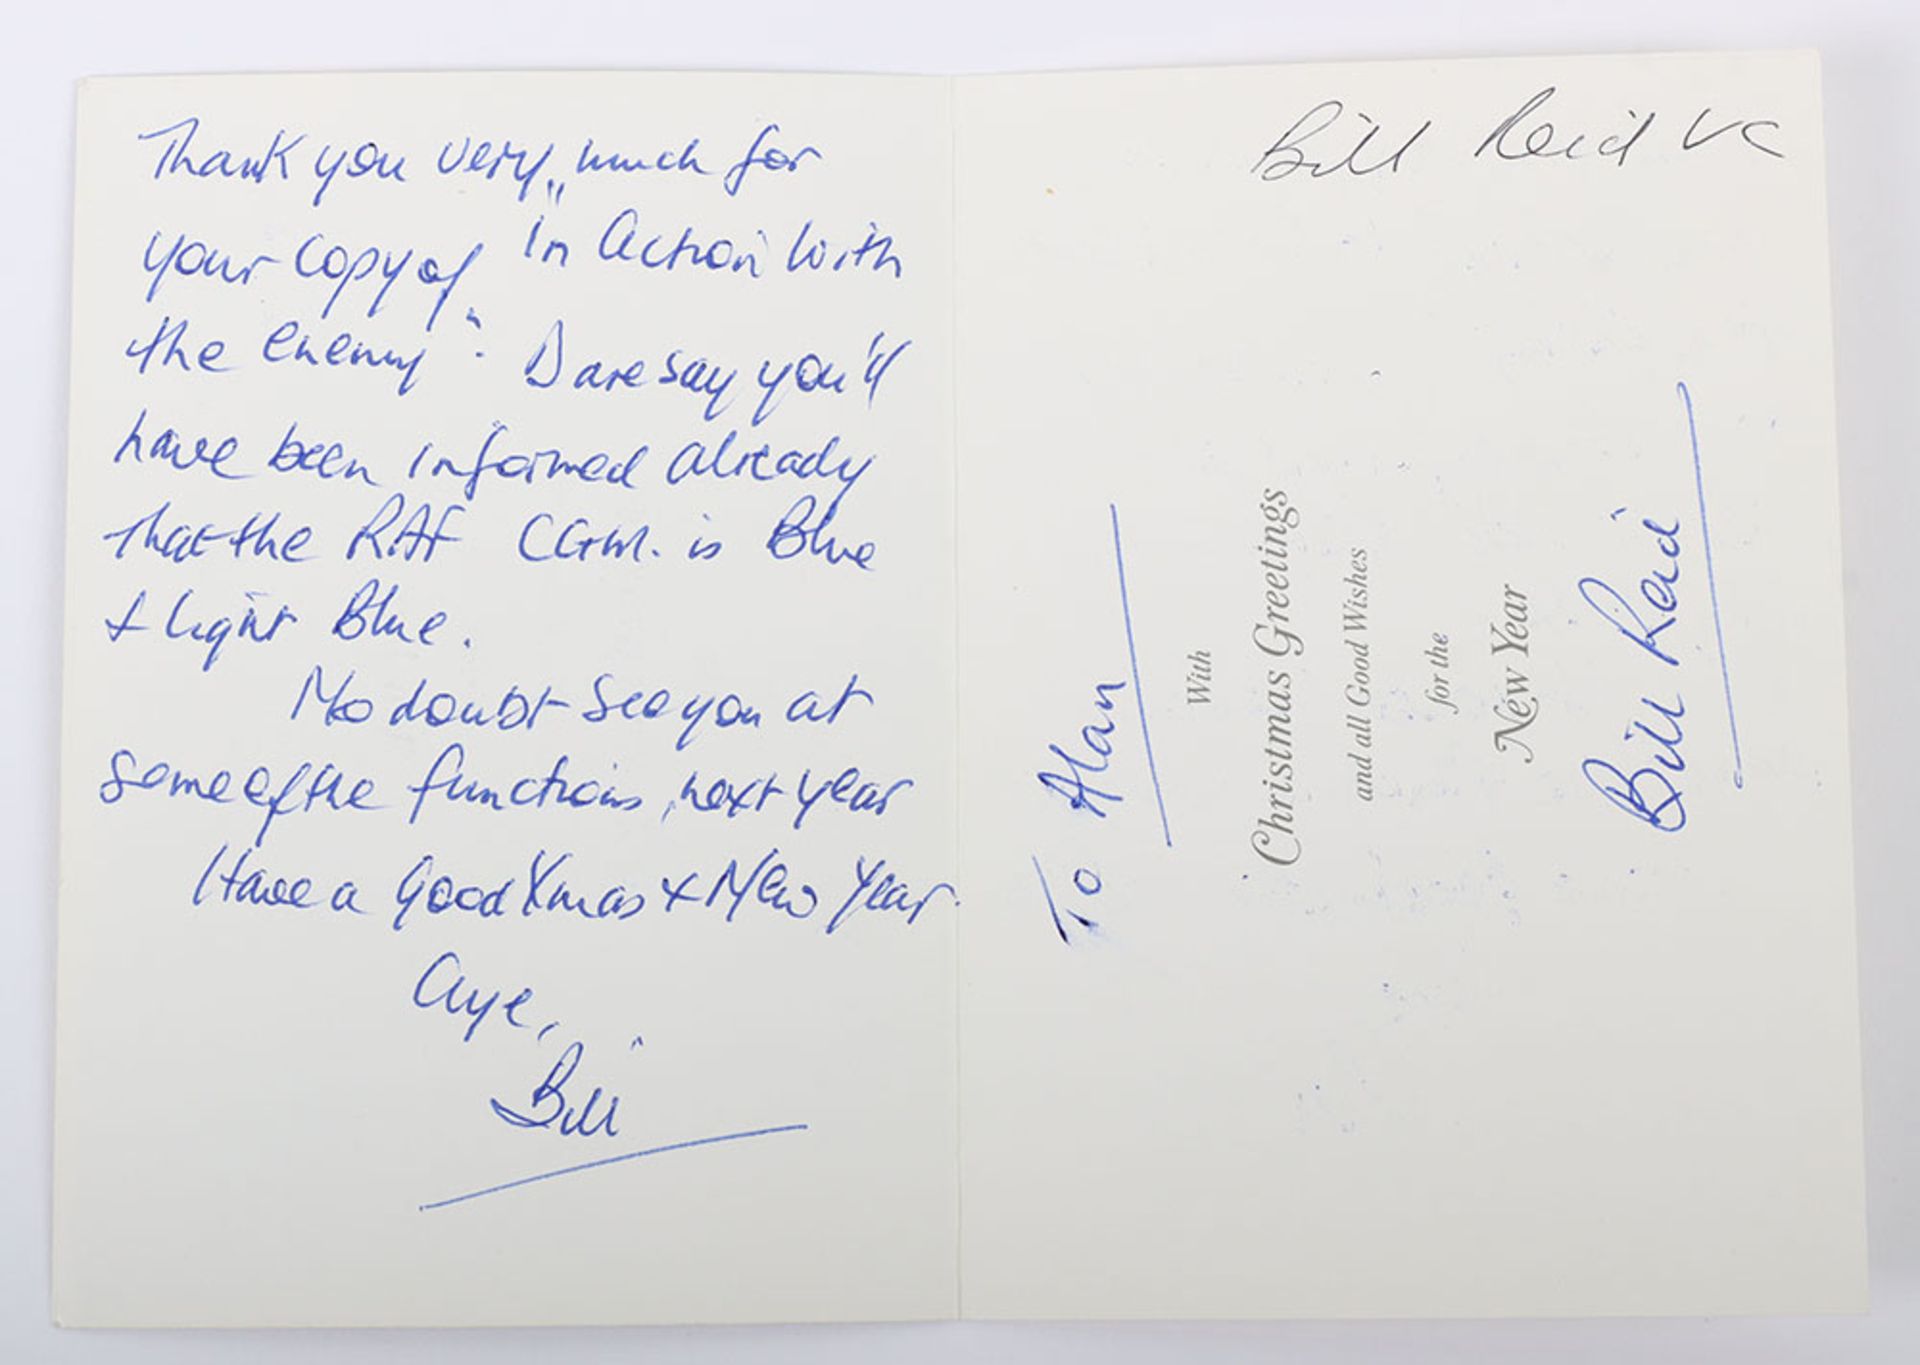 Thank you very much for
your copy of "In Action With
the Enemy". Dare say you'll
have been informed already
that the RAF CGM. is Blue
& Light Blue.
No doubt see you at
some of the functions, next year
Have a Good Xmas & New Year.
Aye,
Bill
Bill Reid VC
To Alan
With
Christmas Greetings
and all Good Wishes
for the
New Year
Bill Reid